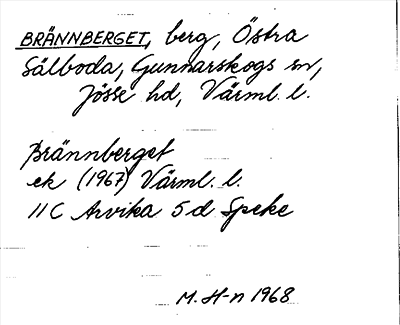 BRÄNNBERGET, berg, Östra
Sälboda, Gunnarskogs sn,
Jösse hd, Värml. l.
Brännberget
ek (1967) Värml. l.
11C Arvika 5d Speke
M. H-n 1968